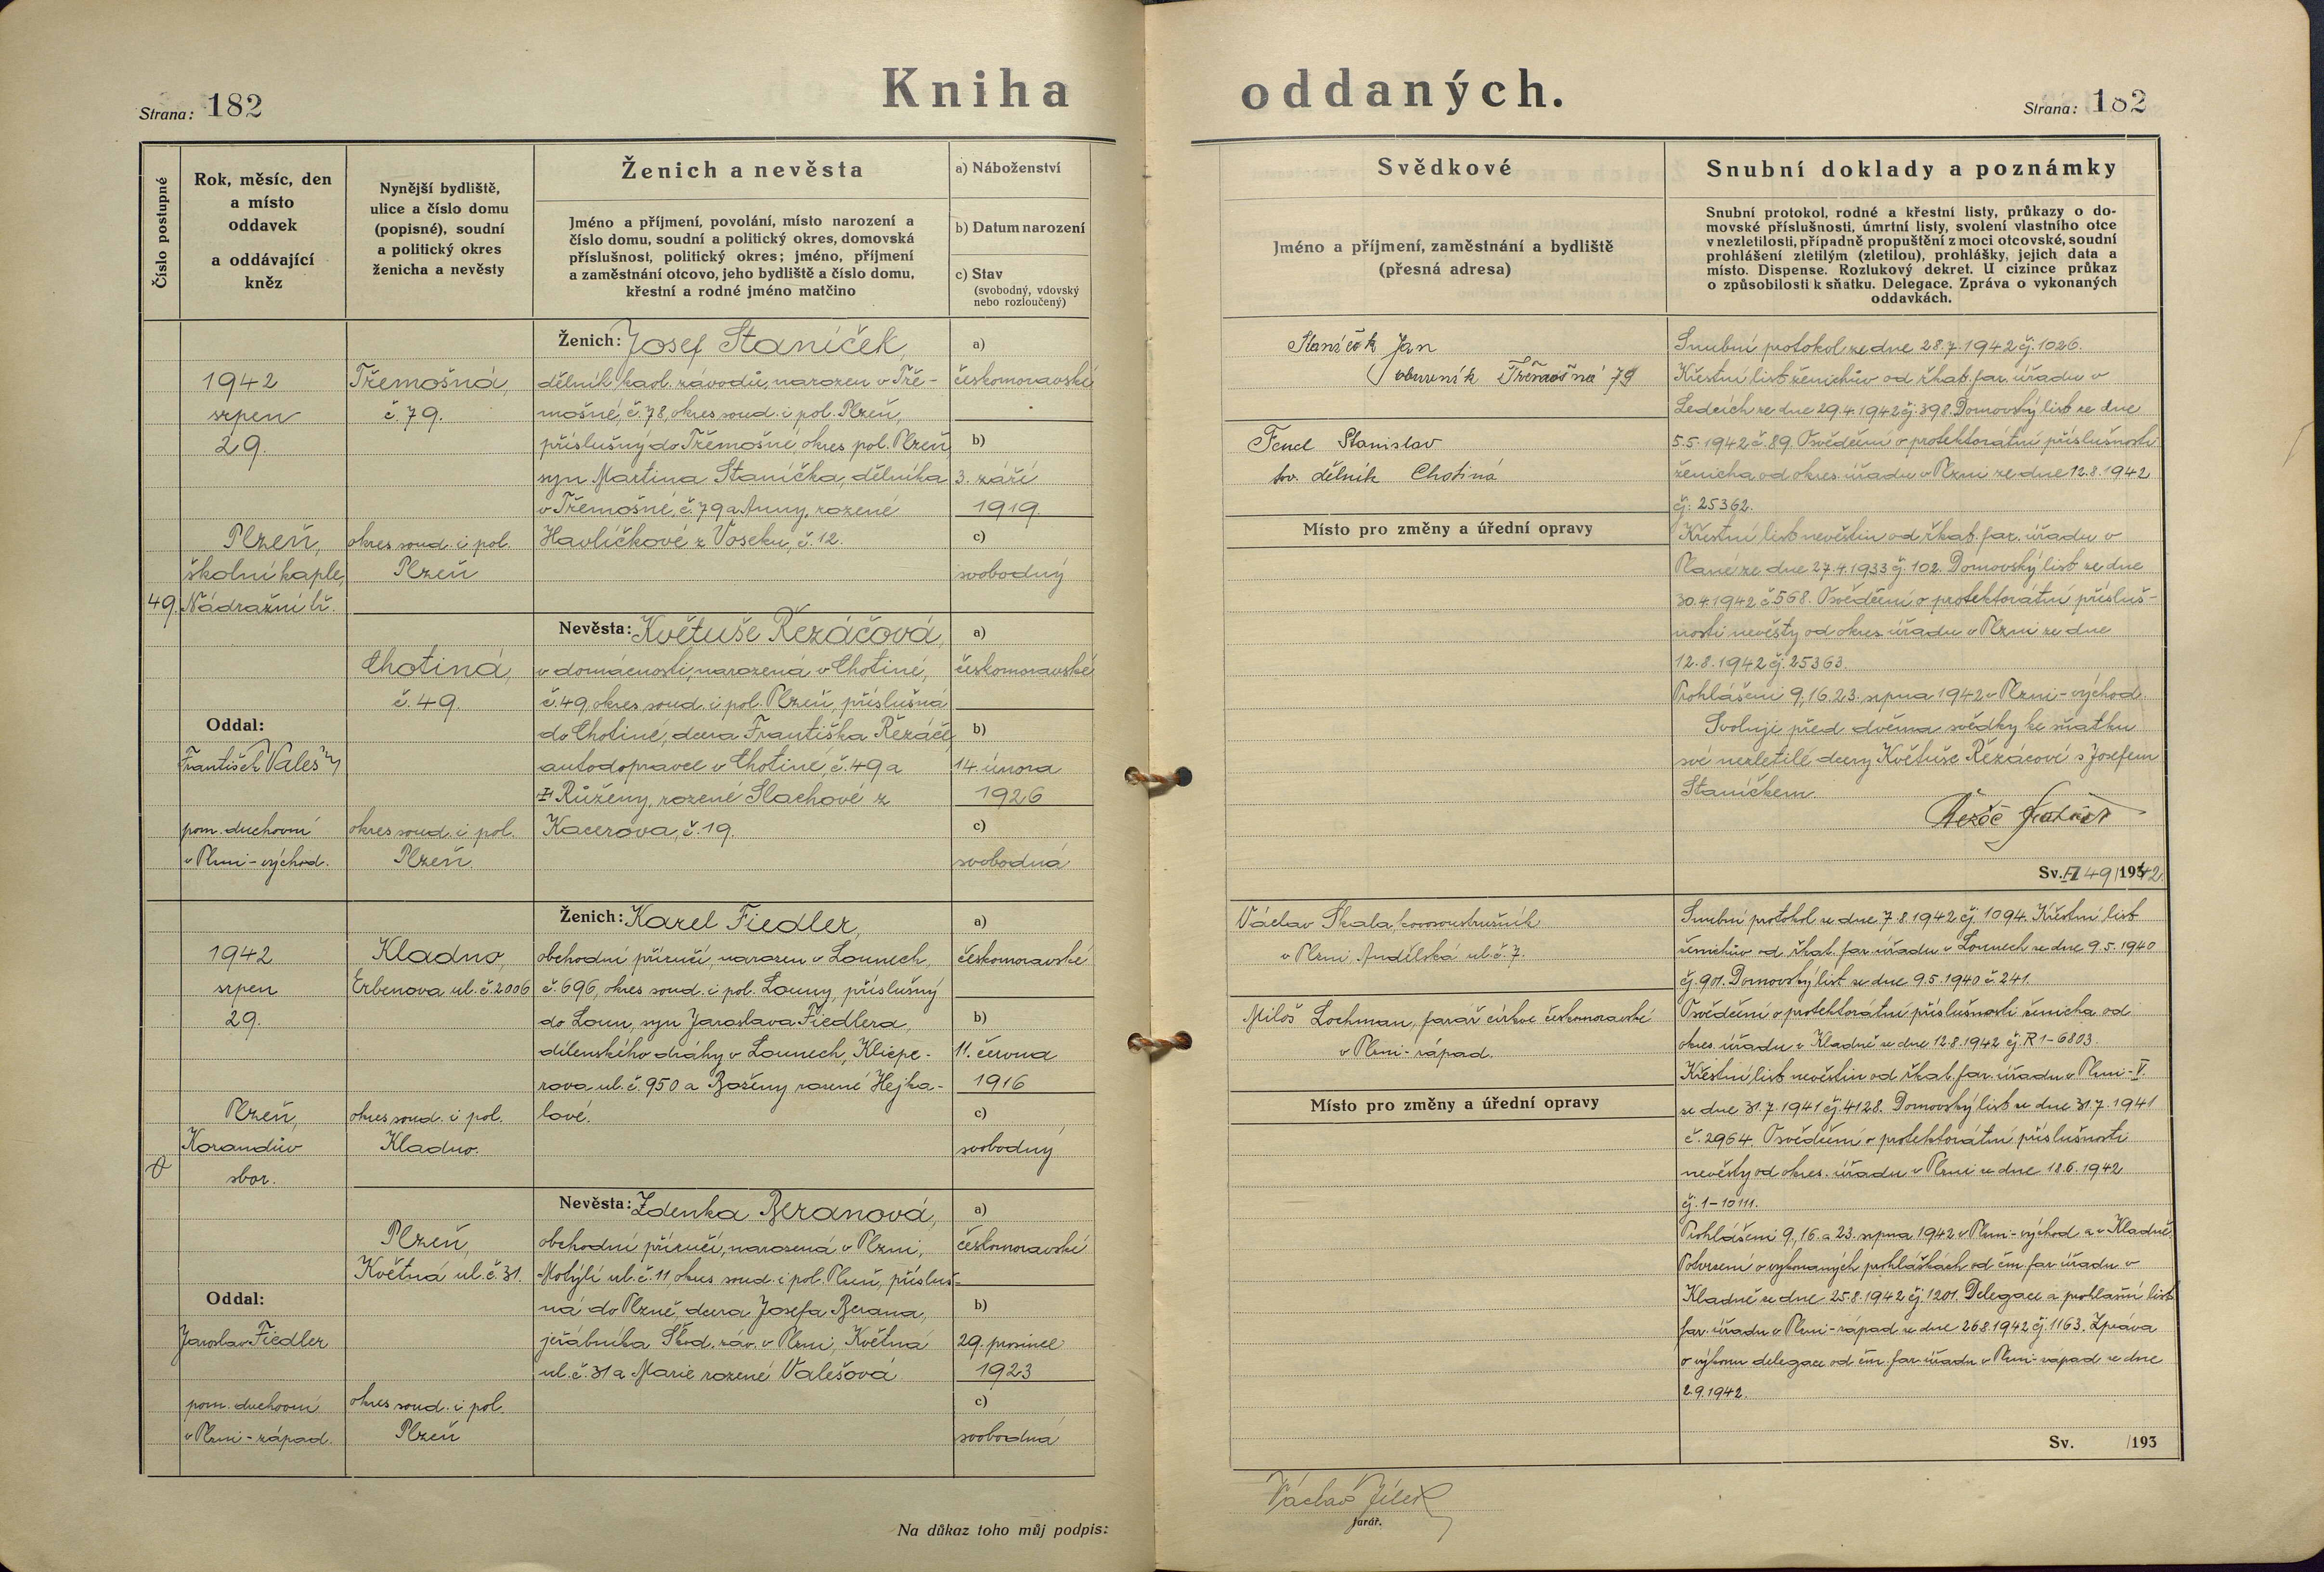 Strana: 182
Kniha oddaných.
Strana: 182
Číslo postupné
Rok, měsíc, den
a místo
oddavek
a oddávající
kněz
Nynější bydliště,
ulice a číslo domu
(popisné), soudní
a politický okres
ženicha a nevěsty
Ženich a nevěsta
Jméno a příjmení, povolání, místo narození a
číslo domu, soudní a politický okres, domovská
příslušnost, politický okres; jméno, příjmení
a zaměstnání otcovo, jeho bydliště a číslo domu,
křestní a rodné jméno matčino
a) Náboženství
b) Datum narození
c) Stav
(svobodný, vdovský
nebo rozloučený)
Svědkové
Jméno a příjmení, zaměstnání a bydliště
(přesná adresa)
Snubní doklady a poznámky
Snubní protokol, rodné a křestní listy, průkazy o do-
movské příslušnosti, úmrtní listy, svolení vlastního otce
v nezletilosti, případně propuštění z moci otcovské, soudní
prohlášení zletilým (zletilou), prohlášky, jejich data a
místo. Dispense. Rozlukový dekret. U cizince průkaz
o způsobilosti k sňatku. Delegace. Zpráva o vykonaných
oddavkách.
49.
1942
srpen
29.
Plzeň,
školní kaple,
Nádražní tř.
Oddal:
František Valeš
pom. duchovní
v Plzni-východ.
Třemošná,
č. 79.
okres soud. i pol.
Plzeň
Chotiná,
č. 49.
okres soud. i pol.
Plzeň.
Ženich: Josef Staníček,
dělník kaol. závodů, narozen v Tře-
mošné, č. 78, okres soud. i pol. Plzeň,
příslušný do Třemošné, okres pol. Plzeň,
syn Martina Staníčka, dělníka
v Třemošné, č. 79 a Anny, rozené
Havlíčkové z Voseku, č. 12.
Nevěsta: Květuše Řezáčová,
v domácnosti, narozená v Chotiné,
č. 49, okres soud. i pol. Plzeň, příslušná
do Chotiné, dcera Františka Řezáče,
autodopravce v Chotiné, č. 49 a
Růženy, rozené Slachové z
Kacerova, č. 19.
a)
českomoravské
b)
3. září
1919.
c)
svobodný
a)
českomoravské
b)
14. února
1926
c)
svobodná
Staníček Jan
Třemošná 79
Fencl Stanislav
tov. dělník Chotiná
Místo pro změny a úřední opravy
Snubní protokol ze dne 28.7.1942 čj. 1026.
Křestní list ženichův od řkat. far. úřadu v
Ledcích ze dne 29.4.1942 čj. 398. Domovský list ze dne
5.5.1942 č. 89. Osvědčení o protektorátní příslušnosti
ženicha od okres. úřadu v Plzni ze dne 12.8.1942
čj. 25362.
Křestní list nevěstin od řkat. far. úřadu v
Plané ze dne 27.4.1933 čj. 102. Domovský list ze dne
30.4.1942 č. 568. Osvědčení o protektorátní přísluš-
nosti nevěsty od okres. úřadu v Plzni ze dne
12.8.1942 čj. 25363.
Prohlášeni 9., 16. 23. srpna 1942 v Plzni-východ.
Svoluji před dvěma svědky ke sňatku
své nezletilé dcery Květuše Řezáčové s Josefem
Staníčkem.
Řezáč František
Sv. 49/1942.
1942
srpen
29.
Plzeň,
Korandův
sbor.
Oddal:
Jaroslav Fiedler
pom. duchovní
v Plzni-západ.
Kladno,
Erbenova ul. č. 2006
okres soud. i pol.
Kladno.
Plzeň,
Květná ul. č. 31.
okres soud. i pol.
Plzeň
Ženich: Karel Fiedler,
obchodní příručí, narozen v Lounech,
č. 696, okres soud. i pol. Louny, příslušný
do Loun, syn Jaroslava Fiedlera,
dílenského dráhy v Lounech, Klicpe-
rova ul. č. 950 a Boženy rozené Hejka-
lové.
Nevěsta: Zdenka Beranová,
obchodní příručí, narozená v Plzni,
Motýlí ul. č. 11, okres soud. i pol. Plzeň, přísluš-
ná do Plzně, dcera Josefa Berana,
jeřábníka Škod. záv. v Plzni, Květná
ul. č. 31 a Marie rozené Valešová
a)
českomoravské
b)
11. června
1916
c)
svobodný
a)
českomoravské
b)
29. prosince
1923
c)
svobodná
Václav Skala, kovosoustružník
v Plzni Andělská ul. č. 7.
Miloš Lochman, farář církve českomoravské
v Plzni-západ.
Místo pro změny a úřední opravy
Snubní protokol ze dne 7.8.1942 čj. 1094. Křestní list
ženichův od řkat. far. úřadu v Lounech ze dne 9.5.1940
čj. 901. Domovský list ze dne 9.5.1940 č. 241.
Osvědčení o protektorátní příslušnosti ženicha od
okres. úřadu v Kladně ze dne 12.8.1942 čj. R 1-6803.
Křestní list nevěstin od řkat. far. úřadu v Plzni-V.
ze dne 31.7.1941 čj. 4128. Domovský list ze dne 31.7.1941
č. 2964. Osvědčení o protektorátní příslušnosti
nevěsty od okres. úřadu v Plzni ze dne 18.6.1942
čj. 1-10111.
Prohlášeni 9., 16. a 23. srpna 1942 v Plzni-východ a v Kladně.
Potvrzení o vykonaných prohláškách od čm. far. úřadu v
Kladně ze dne 25.8.1942 čj. 1201. Delegace a prohlašní list
far. úřadu v Plzni-západ ze dne 26.8.1942 čj. 1163. Zpráva
o výkonu delegace od čm. far. úřadu v Plzni-západ ze dne
2.9.1942.
Sv. /193
Na důkaz toho můj podpis:
Václav Jílek
farář.